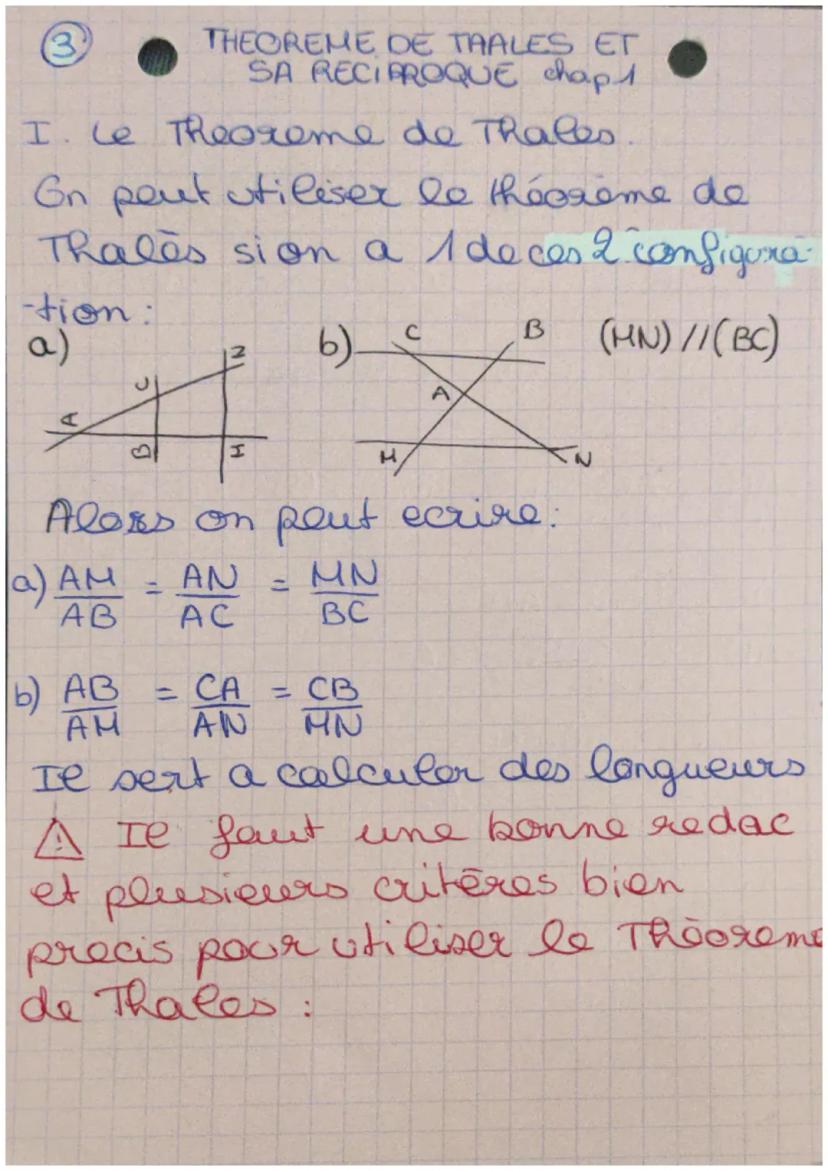 3
THEOREME DE TAALES ET
SA RECIPROQUE chap 1
I. Le Theoreme de Thales.
On peut utiliser le théorème de
Thalès si on a 1 de ces 2 configura-
-tion :
a)
b)
C
B
(MN) // (BC)
A
M
N
Alors on peut ecrire :
a) AM/AB = AN/AC = MN/BC
b) AB/AM = CA/AN = CB/MN
Il sert a calculer des longueurs
⚠ Il faut une bonne redac
et plusieurs critères bien
precis pour utiliser le Théoreme
de Thales :